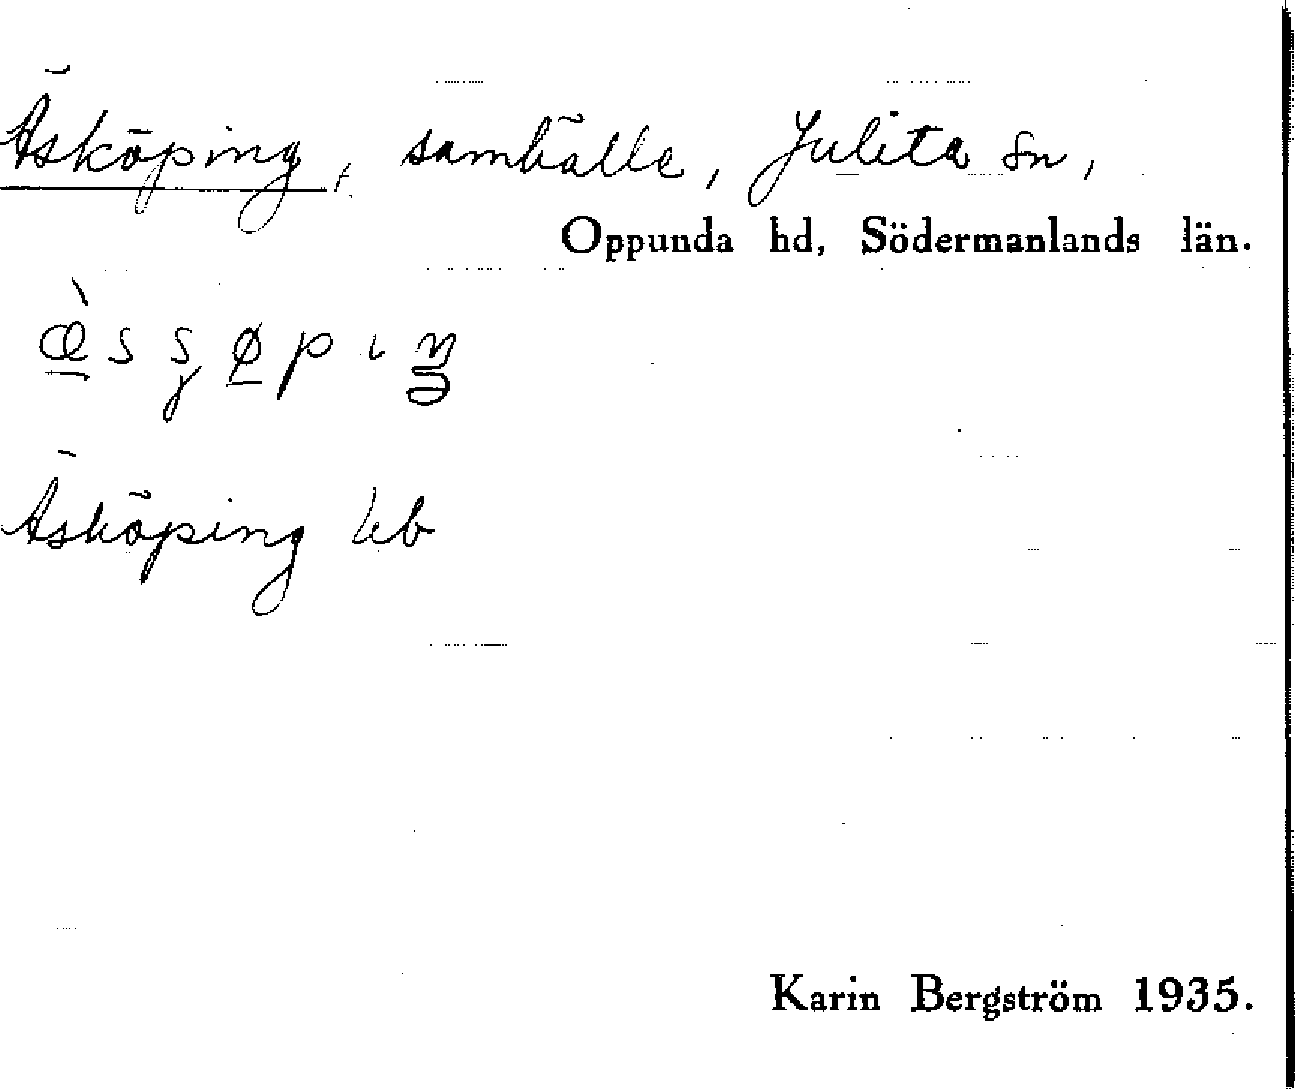 Äsköping, samhälle, Julita sn,
Oppunda hd, Södermanlands län.
Äsköping kb
Karin Bergström 1935.